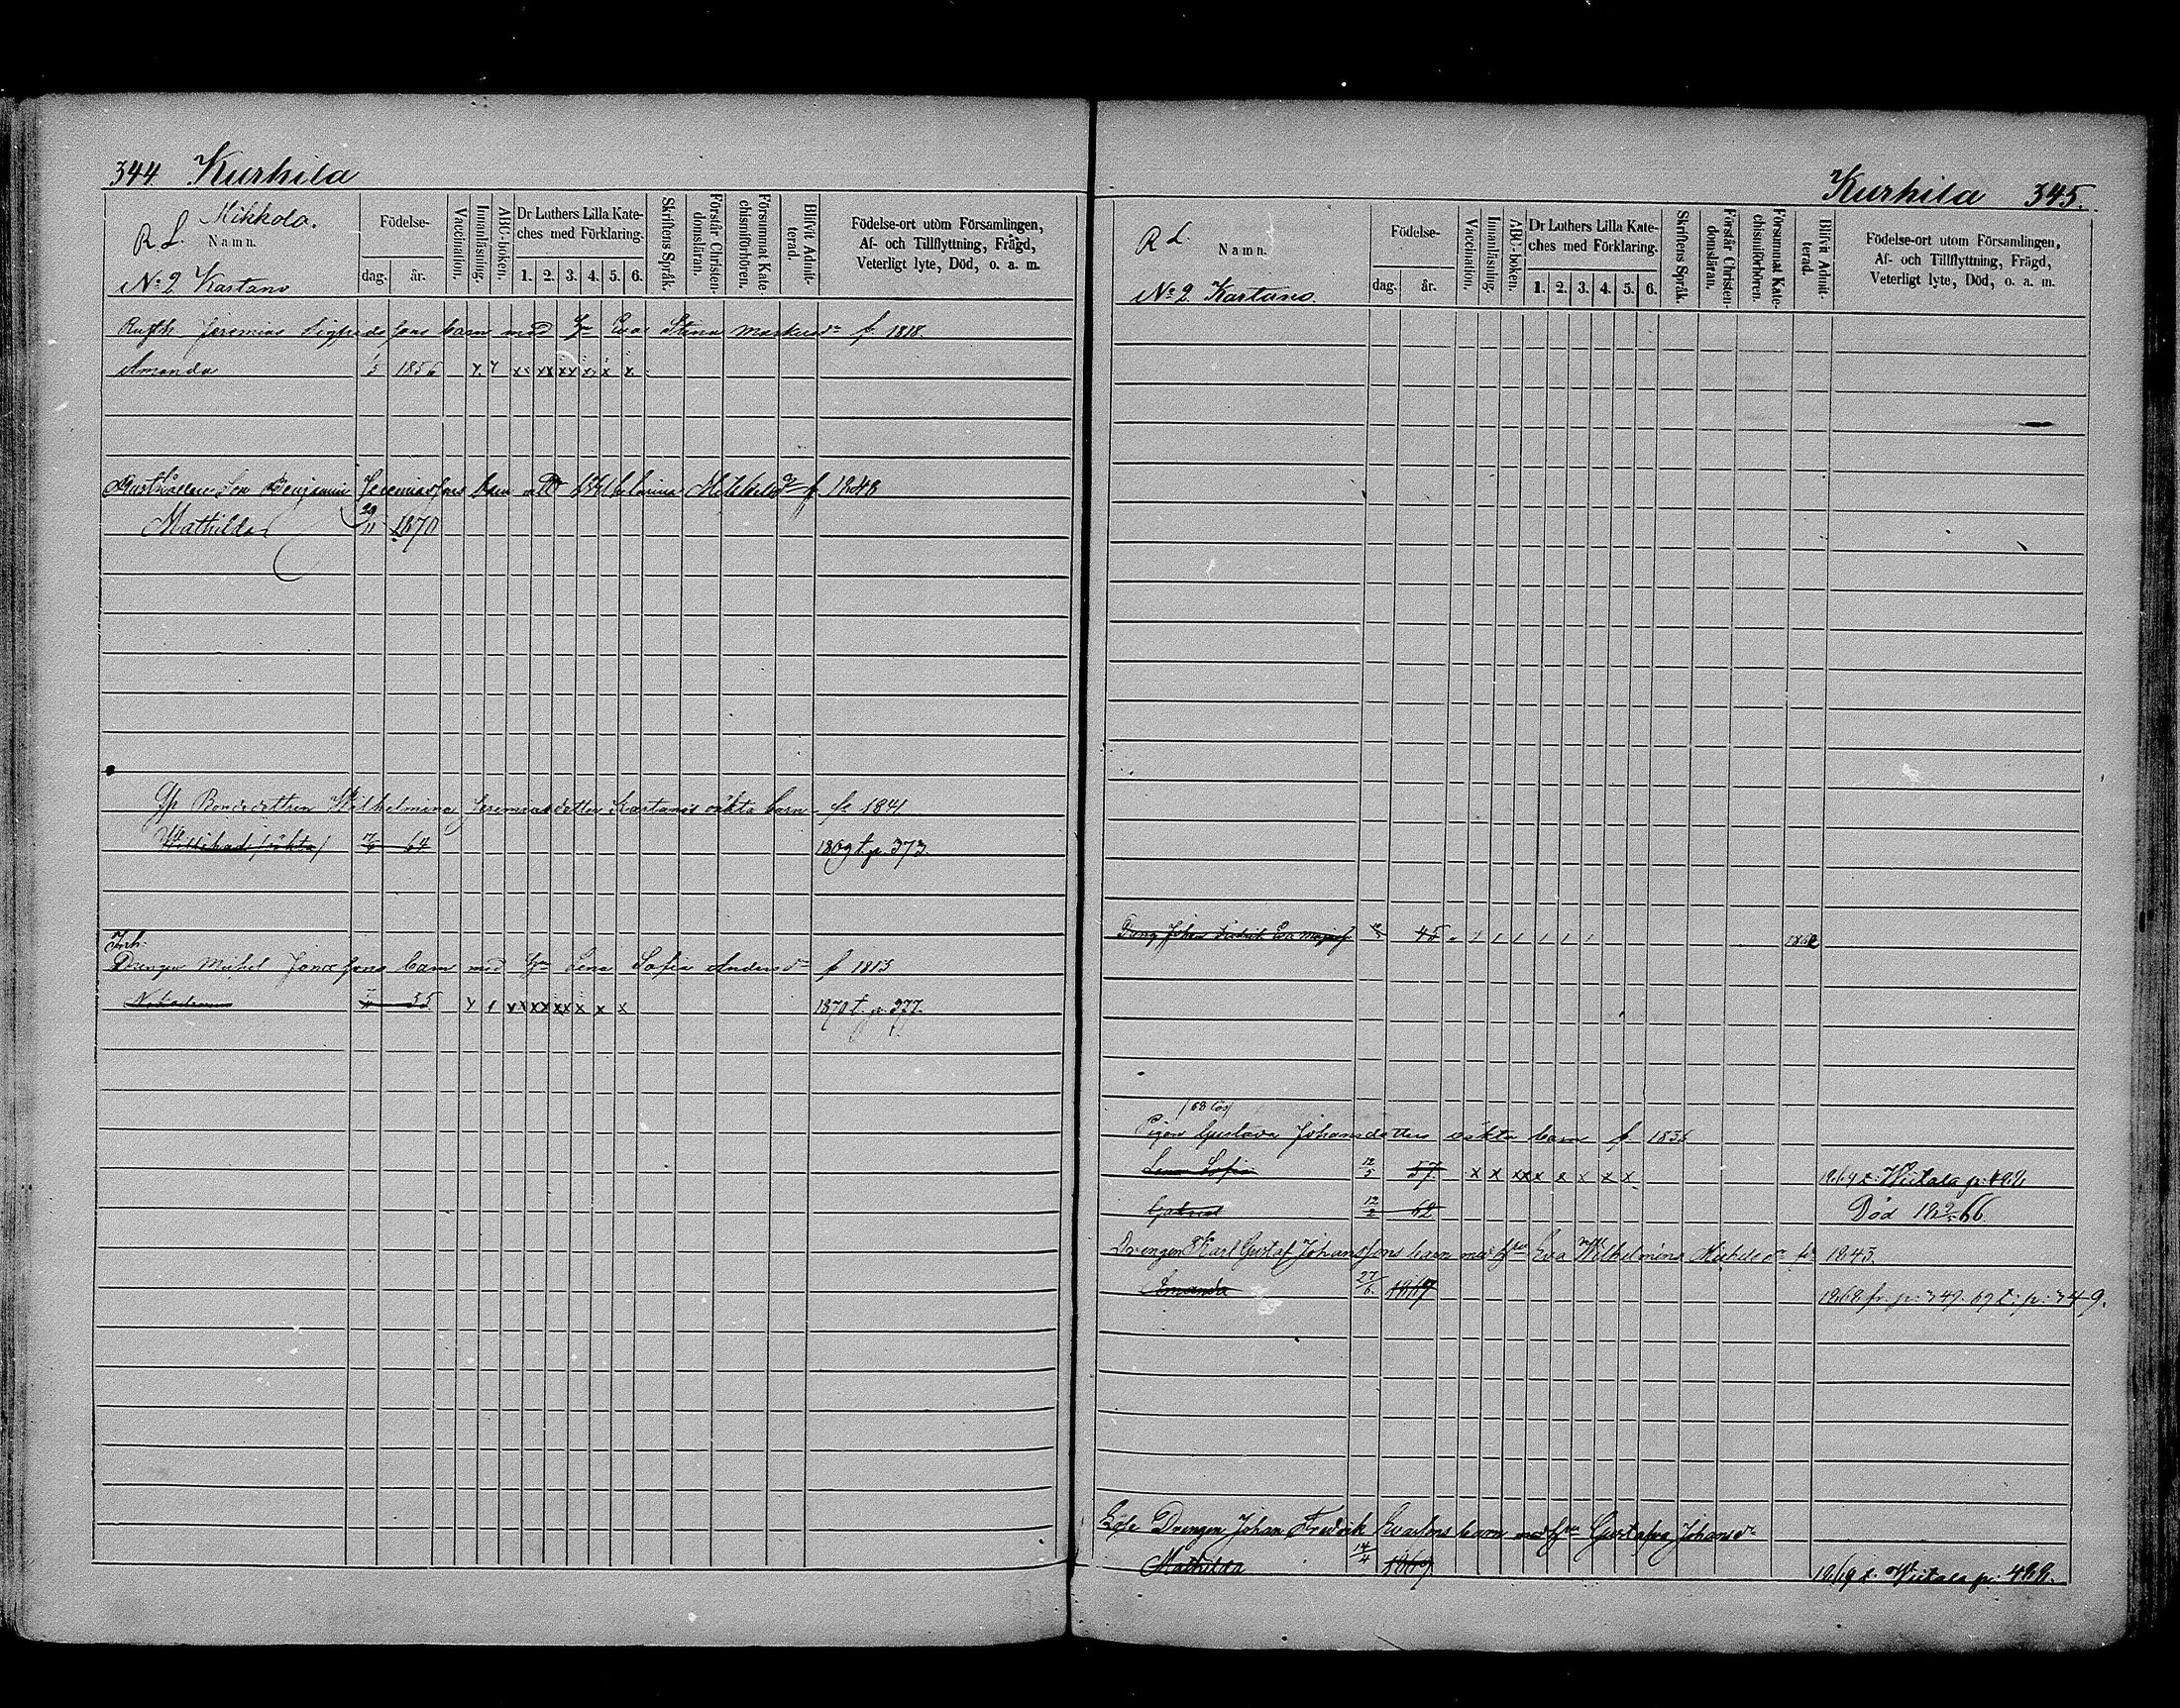 344 Kurhila
Mikkola.
R L. Namn.
No 2 Kartano
Födelse-
dag. år.
Vaccination.
Innanläsning.
ABC-boken.
Dr Luthers Lilla Kate-
ches med Förklaring.
1. 2. 3. 4. 5. 6.
Skriftens Språk.
Förstår Christen-
domsläran.
Försummat Kate-
chismiförhören.
Blifvit Admit-
terad.
Födelse-ort utom Församlingen,
Af- och Tillflyttning, Frägd,
Veterligt lyte, Död, o. a. m.
Jeremias Sigfrids sons barn med Eva Stina Markusdr f. 1818.
Amanda 1856
Son Benjamin Jeremiassons barn f. 1848
Mathilda 29/11 1870
Bondedottren Wilhelmina Jeremiasdotter Kartanos oäkta barn f. 1841
64 1869 t. p. 373.
Inh.
Drengen Michel sons barn med Lena Sofia Andersdr f 1813
55 1870 t. p. 377.
Kurhila 345.
R L. Namn.
No 2. Kartano.
Födelse-
dag. år.
Vaccination.
Innanläsning.
ABC-boken.
Dr Luthers Lilla Kate-
ches med Förklaring.
1. 2. 3. 4. 5. 6.
Skriftens Språk.
Förstår Christen-
domsläran.
Försummat Kate-
chismiförhören.
Blifvit Admit-
terad.
Födelse-ort utom Församlingen,
Af- och Tillflyttning, Frägd,
Veterligt lyte, Död, o. a. m.
Johan Fredrik 45
Pigan Gustava Johansdotters oäkta barn f.
Lena Sofia 12/5 57 1869 t. Wiitala p.
Gabriel 12/2 62 Död
Drengen Karl Gustaf Johanssons barn med Eva Wilhelmina 1843.
Amanda 27/6. 1867 1868 fr. p: 349. 69 t: p: 349.
Drengen Johan Fredrik barn med Gustafva Johansdr
Mathilda 14/4 1869 1869 t. Wiitala p: 488.